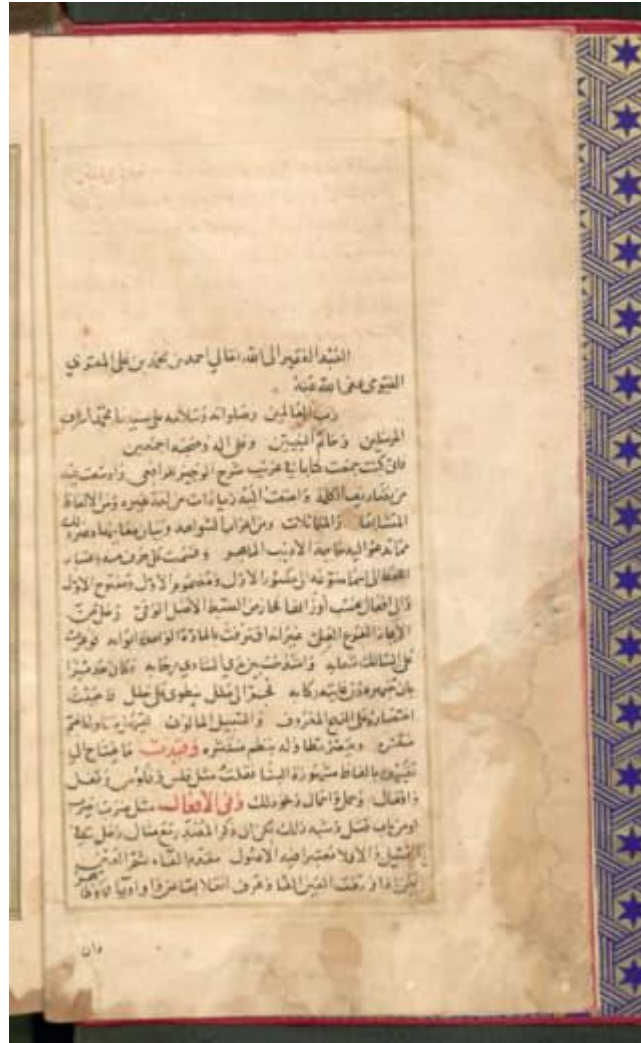 العبد الفقير الى الله تعالى احمد بن محمد بن على المقري
الفيومى عفى الله عنه
رب العالمين وصلواته وسلامه على سيدنا محمد اشرف
المرسلين وخاتم النبيين وعلى اله وصحبه اجمعين
فانى كنت جمعت كتابا فى غريب شرح الوجيز للرافعى واوسعت فيه
من تصاريف الكلمة واضفت اليه زيادات من لغة غيره ومن الالفاظ
المشتبهات والمتماثلات ومن اعراب الشواهد وبيان معانيها وغير ذلك
مما تدعو اليه حاجة الاديب الماهر وقسمت كل حرف منه باعتبار
اللفظ الى اسما منوعة الى مكسور الاول ومضموم الاول ومفتوح الاول
والى افعال بحسب اوزانها فحاز من الضبط الاصل الوفى وحل من
الايجاز الفرع العلى غير انه افترقت بالمادة الواحدة ابوابه فوعرت
على السالك شعابه وامتدحت بين يدي الشادي رحابه فكان جديرا
بان تنبهر دون غايته ركابه فجر الى ملل ينطوى على خلل فاحببت
اختصاره على النهج المعروف والسبيل المالوف ليسهل تناوله بضم
منتشره ويقصر تطاوله بنظم منتثره وقيدت ما يحتاج الى
تقييده بالفاظ مشهورة البنا فقلت مثل فلس وفلوس وقفل
واقفال وحمل واحمال ونحو ذلك وفى الافعال مثل ضرب يضرب
او من باب قتل وشبه ذلك لكن ان ذكر المصدر مع مثال دخل فى
التمثيل والا فلا معتبرا فيه الاصول مقدم الفاء ثم العين
لكن اذا وقعت العين الفا وعرف انقلابها عن واو او يا فهو
وان